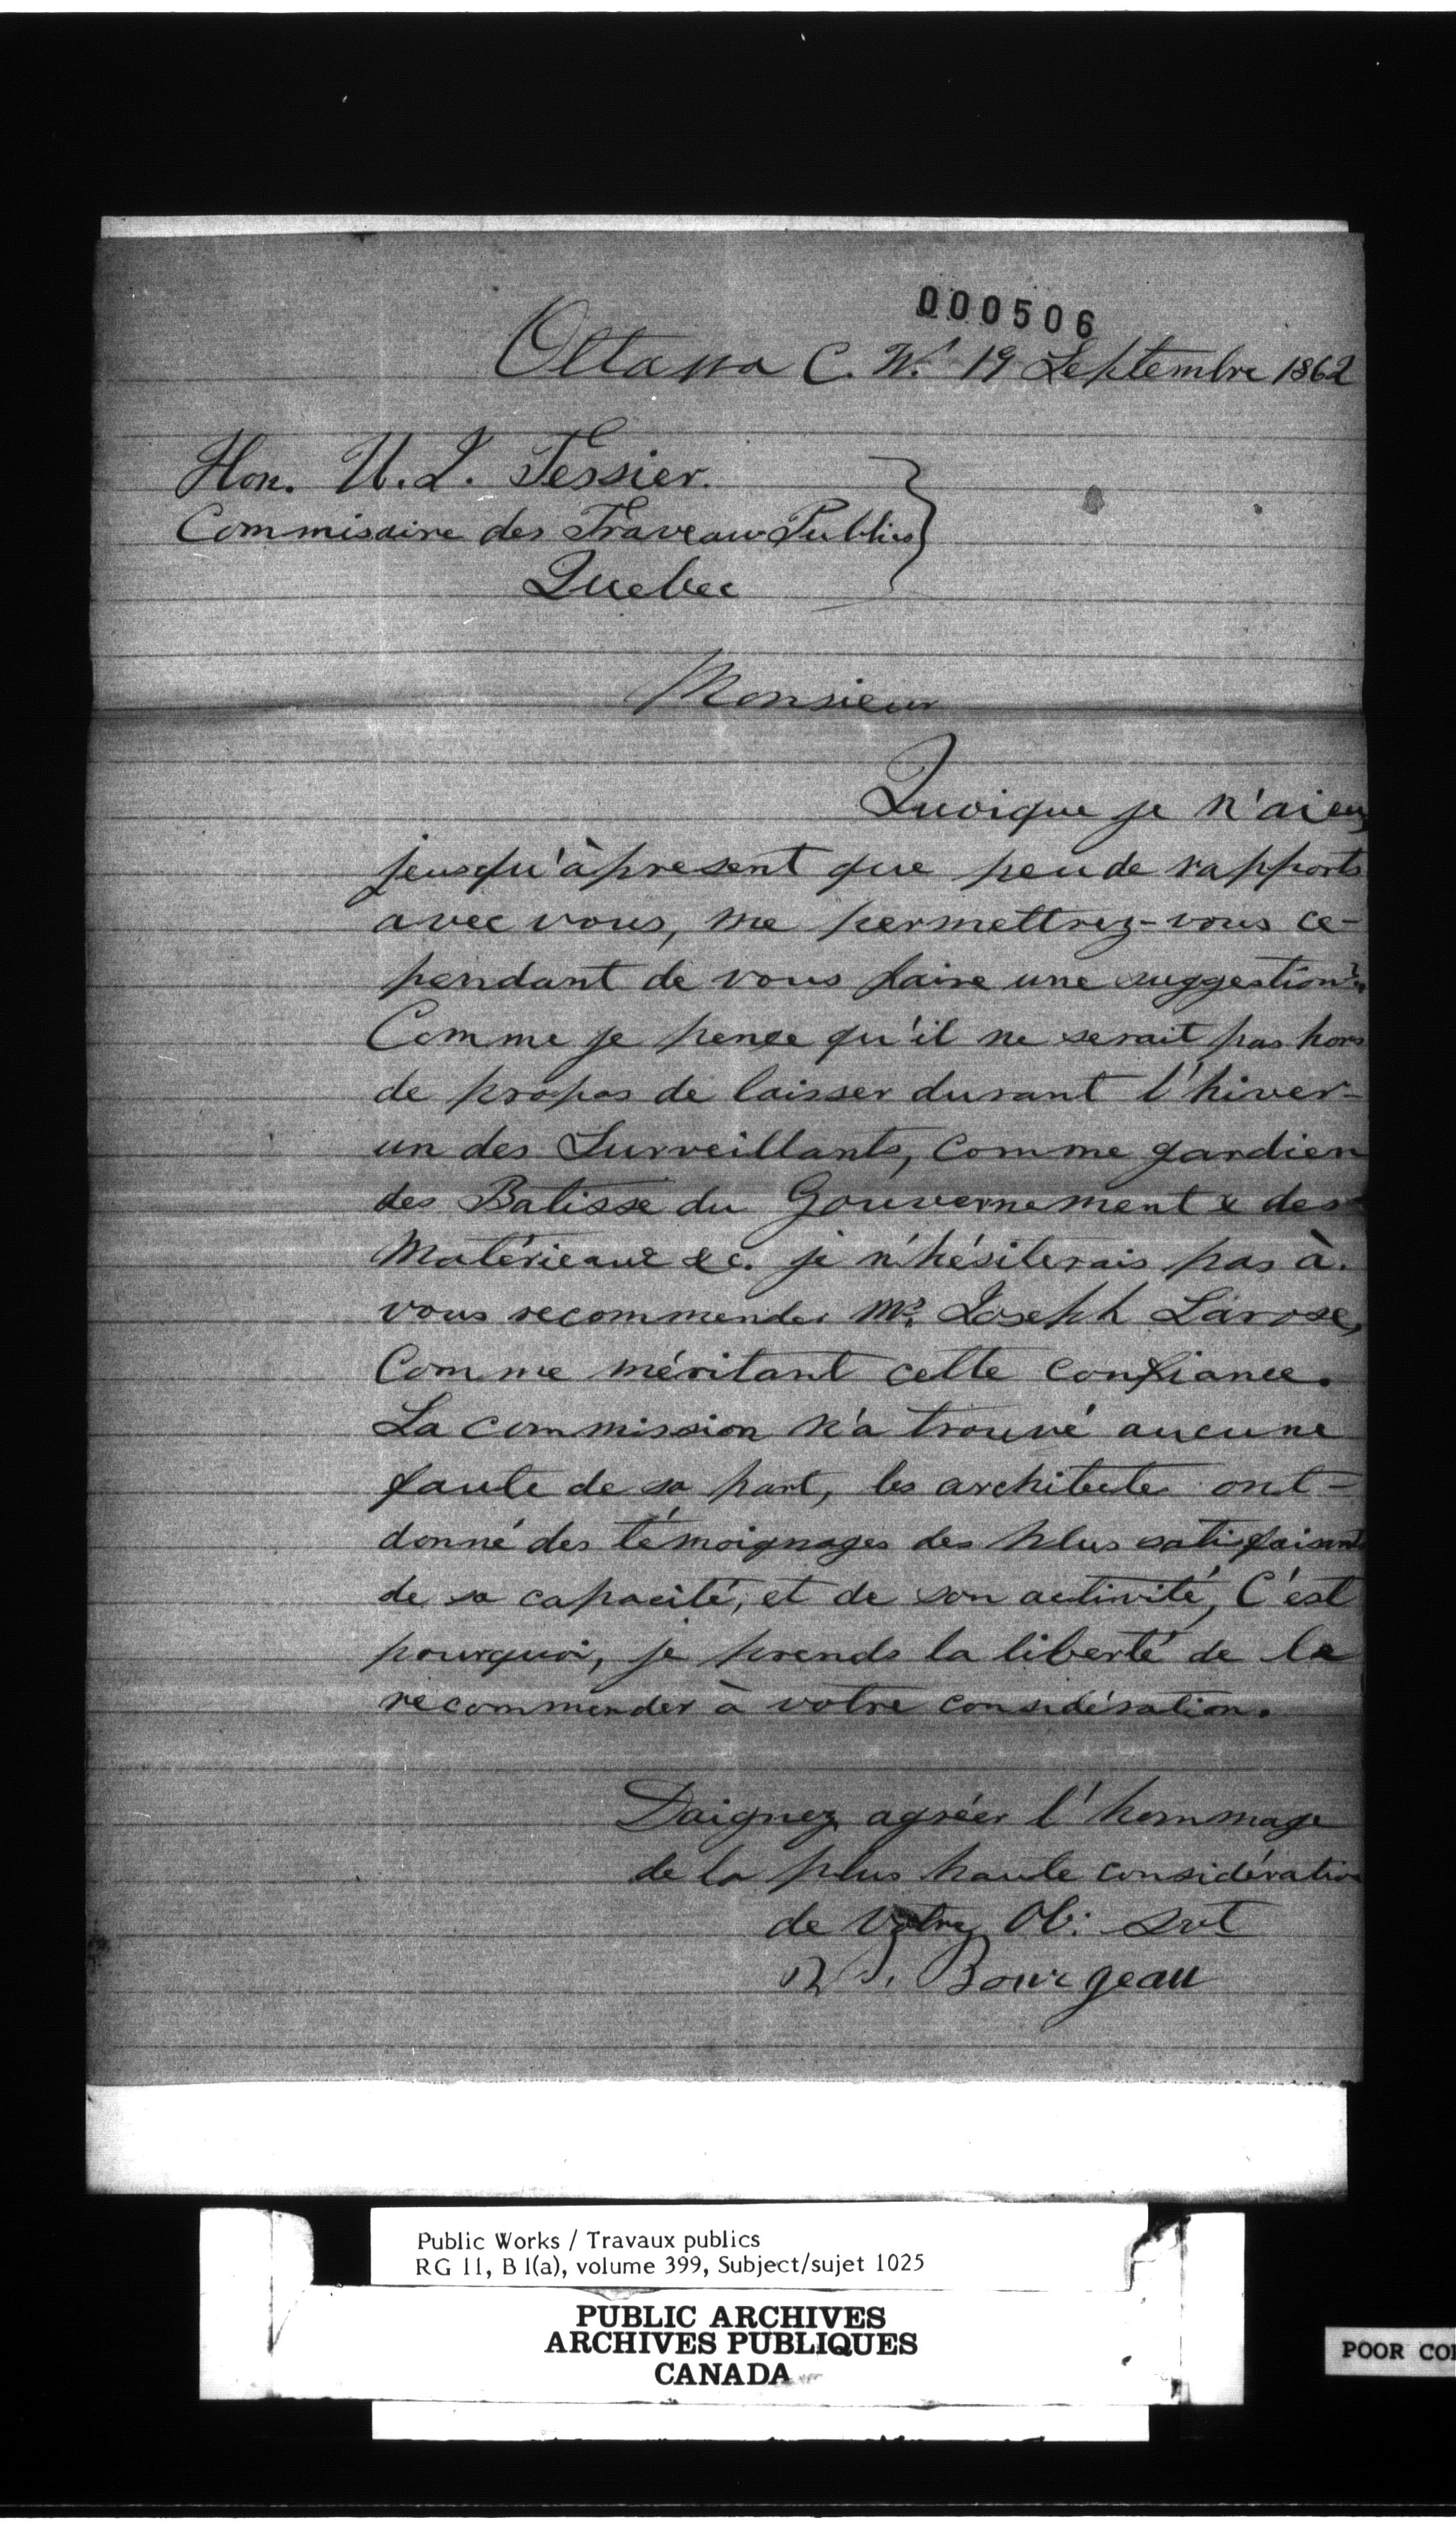 000506
Ottawa C. W. 19 Septembre 1862
Hon. U. J. Tessier.
Commisaire des Traveaux Publics
Quebec
Monsieur
Quoique je n'ai eu
jeusqu'à présent que peu de rapports
avec vous, me permettrez-vous ce-
pendant de vous faire une suggestion?
Comme je pense qu'il ne serait pas hors
de propos de laisser durant l'hiver-
un des Surveillants, comme gardien
des Batisse du Gouvernement & des
Matérieaux &c. je n'hésiterais pas à
vous recommender Mr. Joseph Larose,
Comme méritant cette confiance.
La commission n'a trouvé aucune
faute de sa part, les architecte ont-
donné des témoignages des plus satisfaisants
de sa capacité, et de son activité, C'est
pourquoi, je prends la liberté de le
recommender à votre considération.
Daignez agréer l'hommage
de la plus haute considération
de Votre Ob: Svt
Bourgeau
Public Works / Travaux publics
RG 11, B 1(a), volume 399, Subject/sujet 1025
PUBLIC ARCHIVES
ARCHIVES PUBLIQUES
CANADA
POOR